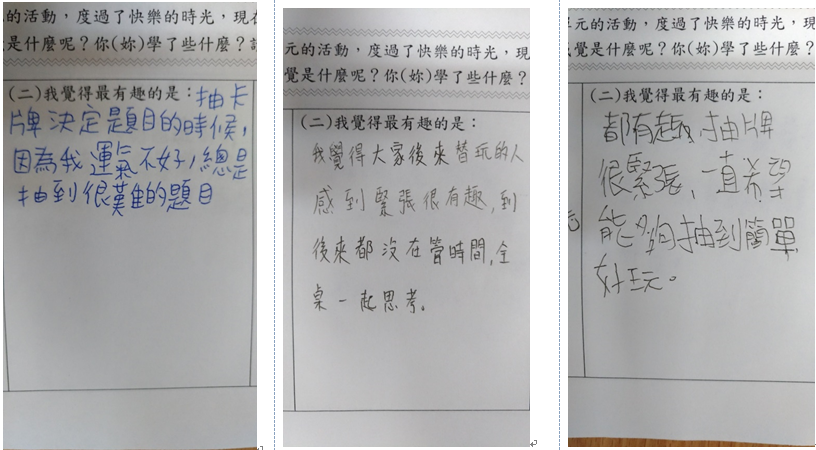 的活動，度過了快樂的時光，現在
是什麼呢？你(妳)學了些什麼？
(二)我覺得最有趣的是：抽卡
牌決定題目的時候，
因為我運氣不好，總是
抽到很難的題目
元的活動，度過了快樂的時光，現
覺是什麼呢？你(妳)學了些什麼？
(二)我覺得最有趣的是：
我覺得大家後來替玩的人
感到緊張很有趣，到
後來都沒在管時間，全
桌一起思考。
元的活動，度過了快樂的時光，現
覺是什麼呢？你(妳)學了些什麼？
(二)我覺得最有趣的是：
都有趣，抽牌
很緊張，一直希望
能夠抽到簡單
好玩。